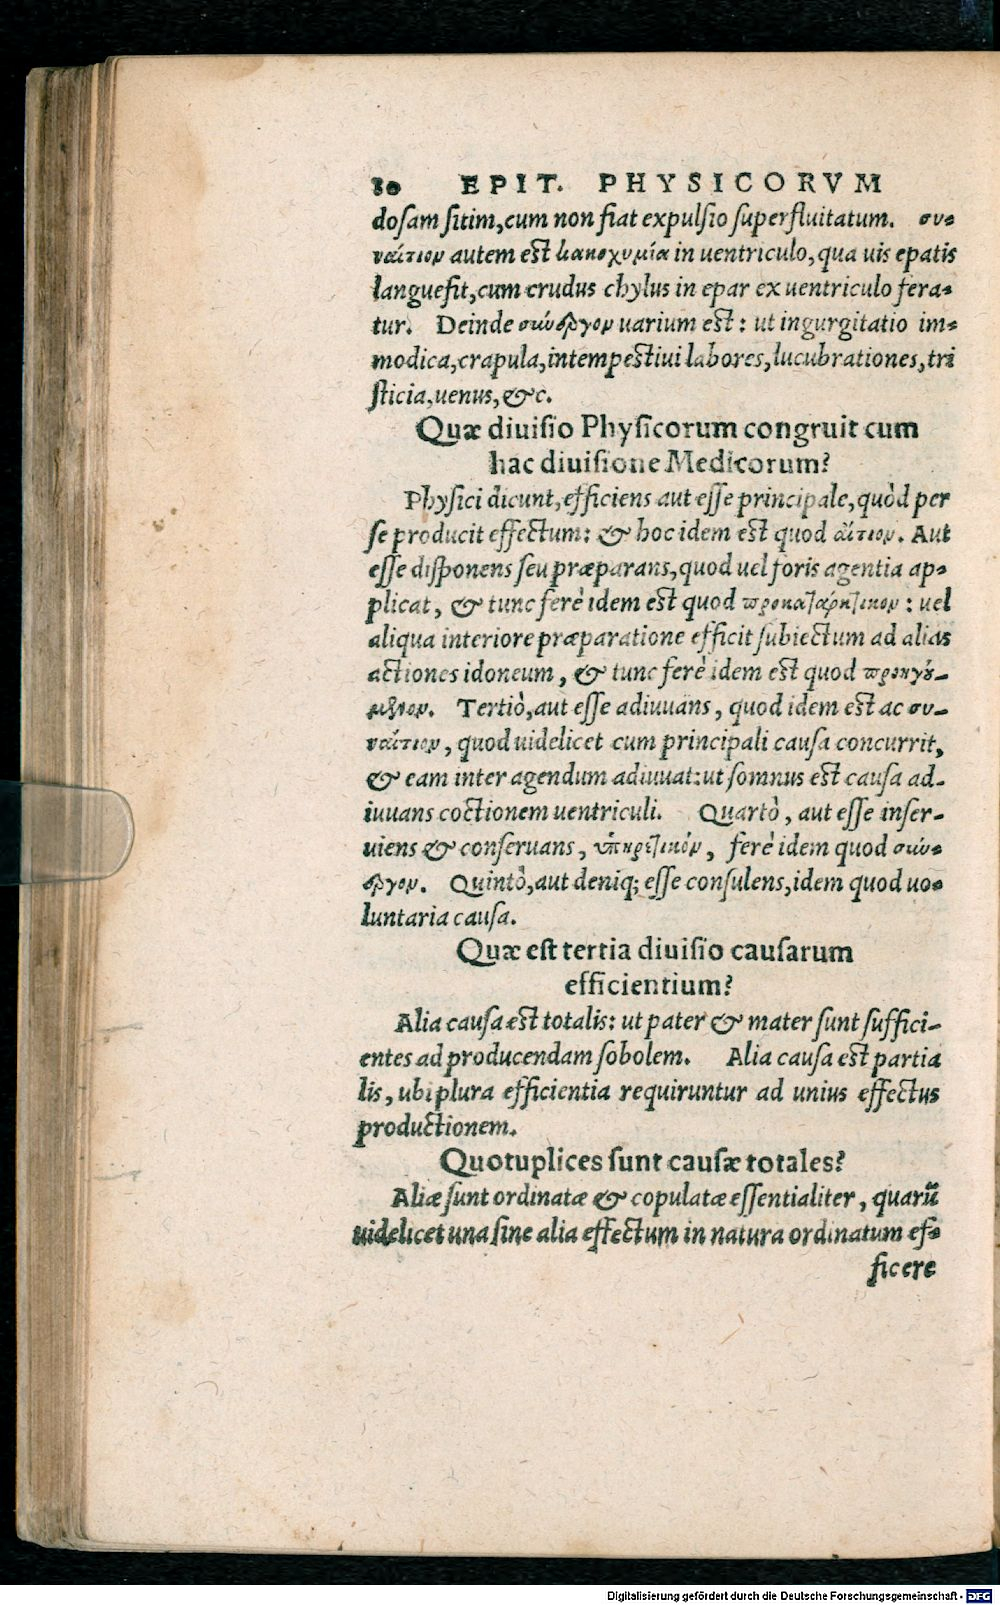 80 EPIT. PHYSICORVM
dosam sitim, cum non fiat expulsio superfluitatum. συ-
ναίτιον autem est κακοχυμία in uentriculo, qua uis epatis
languefit, cum crudus chylus in epar ex uentriculo fera-
tur. Deinde σύνεργον uarium est: ut ingurgitatio im-
modica, crapula, intempestiui labores, lucubrationes, tri
sticia, uenus, &c.
Quæ diuisio Physicorum congruit cum
hac diuisione Medicorum?
Physici dicunt, efficiens aut esse principale, quòd per
se producit effectum: & hoc idem est quod αἴτιον. Aut
esse disponens seu præparans, quod uel foris agentia ap-
plicat, & tunc ferè idem est quod προκαταρκτικον: uel
aliqua interiore præparatione efficit subiectum ad alias
actiones idoneum, & tunc ferè idem est quod προηγού-
μενον. Tertiò, aut esse adiuuans, quod idem est ac συ-
ναίτιον, quod uidelicet cum principali causa concurrit,
& eam inter agendum adiuuat: ut somnus est causa ad-
iuuans coctionem uentriculi. Quartò, aut esse inser-
uiens & conseruans, ὑπηρετικόν, ferè idem quod σύν-
εργον. Quintò, aut deniq; esse consulens, idem quod uo-
luntaria causa.
Quæ est tertia diuisio causarum
efficientium?
Alia causa est totalis: ut pater & mater sunt suffici-
entes ad producendam sobolem. Alia causa est partia
lis, ubi plura efficientia requiruntur ad unius effectus
productionem.
Quotuplices sunt causæ totales?
Aliæ sunt ordinatæ & copulatæ essentialiter, quarũ
uidelicet una sine alia effectum in natura ordinatum ef-
ficere
Digitalisierung gefördert durch die Deutsche Forschungsgemeinschaft - DFG